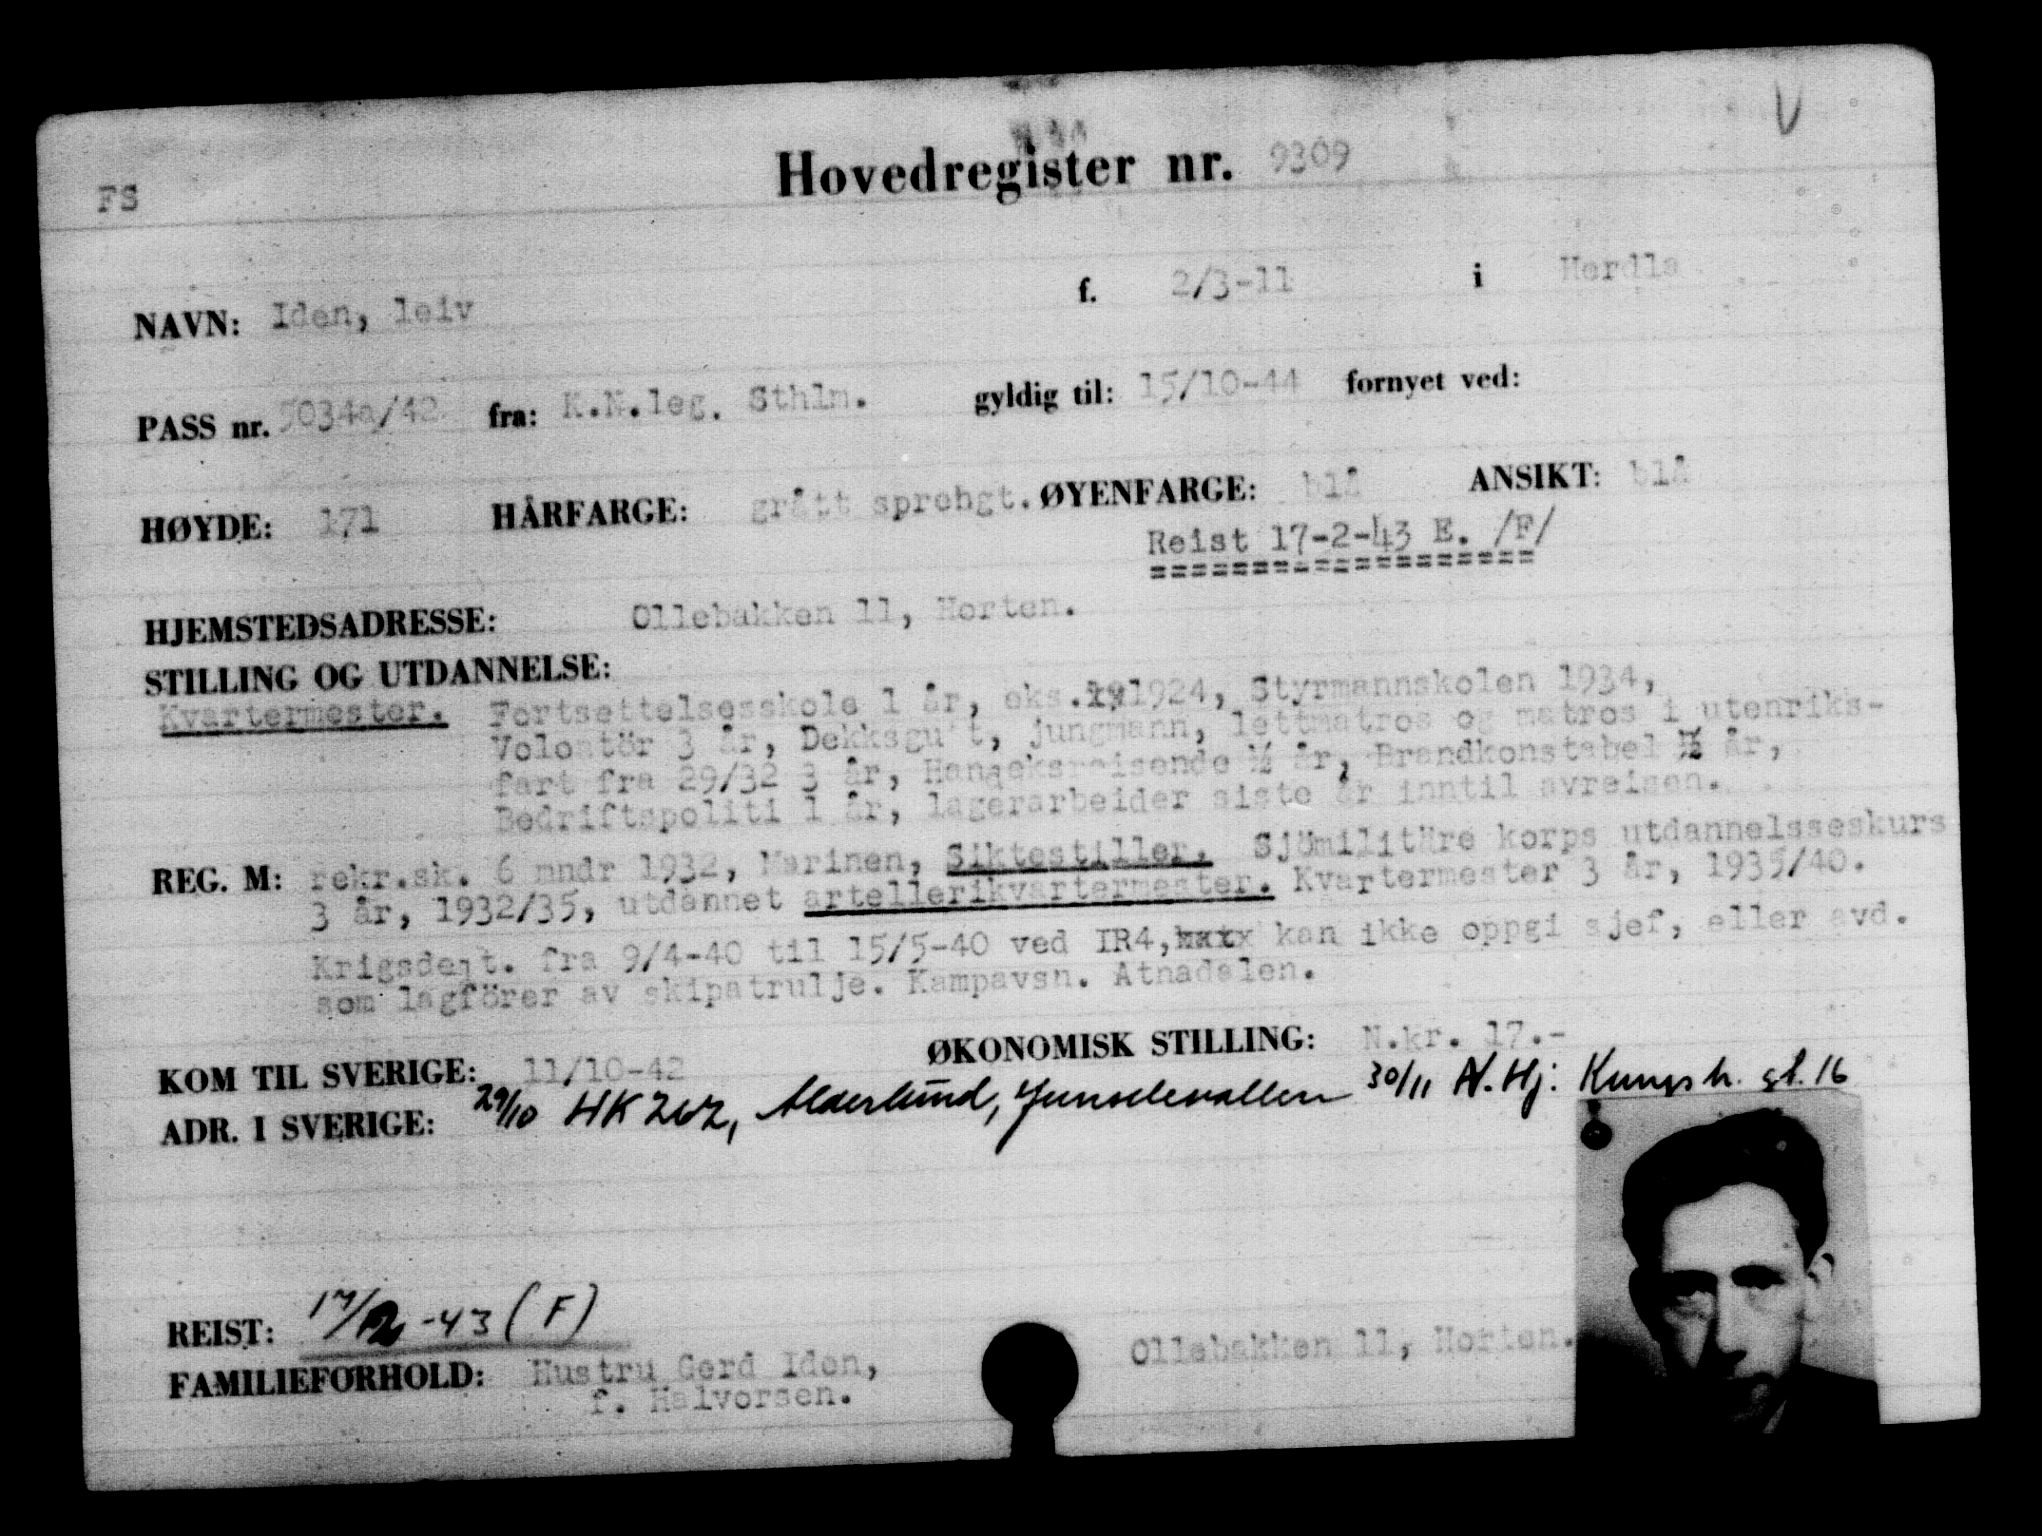 FS
Hovedregister nr. 9309
NAVN: Iden, leiv f. 2/3-11 i Herdla
PASS nr. 5034a/42 fra: K.N.leg. Sthlm. gyldig til: 15/10-44 fornyet ved:
HØYDE: 171 HÅRFARGE: grått sprengt. ØYENFARGE: blå ANSIKT: blå
Reist 17-2-43 E. /F/
===================
HJEMSTEDSADRESSE: Ollebakken 11, Horten.
STILLING OG UTDANNELSE:
Kvartermester. Fortsettelsesskole 1 år, eks. 1924, Styrmannskolen 1934,
Volontör 3 år, Dekksgutt, jungmann, lettmatros og matros i utenriks-
fart fra 29/32 3 år, Handeksreisende ½ år, Brandkonstabel ½ år,
Bedriftspoliti 1 år, lagerarbeider siste år inntil avreisen.
REG. M: rekr.sk. 6 mndr 1932, Marinen, Siktestiller. Sjömilitäre korps utdannelsseskurs
3 år, 1932/35, utdannet artellerikvartermester. Kvartermester 3 år, 1935/40.
Krigsdeqt. fra 9/4-40 til 15/5-40 ved IR4, kan ikke oppgi sjef, eller avd.
som lagförer av skipatrulje. Kampavsn. Atnadalen.
KOM TIL SVERIGE: 11/10-42 ØKONOMISK STILLING: N.kr. 17.-
ADR. I SVERIGE: 29/10 HK 262, Alderlund, Junselevallen 30/11 N. Hj: Kungsh. gt. 16
REIST: 17/2-43 (F)
FAMILIEFORHOLD: Hustru Gerd Iden, Ollebakken 11, Horten.
f. Halvorsen.